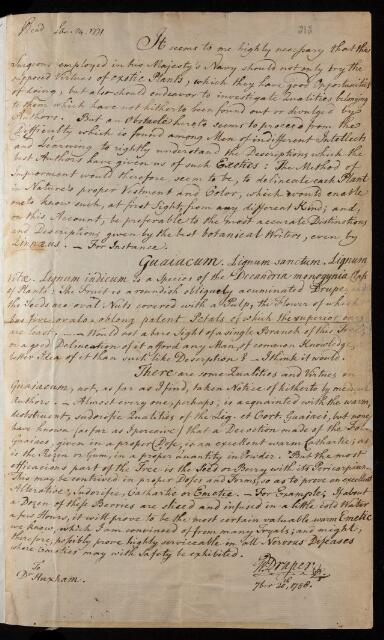 Read Dec. 24. 1771
212
It seems to me highly necessary that the
Surgeons employed in his Majesty's Navy should not only try the
supposed Virtues of exotic Plants, which they have good Opportunities
of doing, but also should endeavor to investigate Qualities belonging
to them which have not hitherto been found out or divulg'd by
Authors. But an Obstacle hereto seems to proceed from the
Difficulty which is found among Men of indifferent Intellects
and Learning to rightly understand the Descriptions which the
best Authors have given us of such Exotics: The Method of
Improvement would therefore seem to be, to delineate each Plant
in Nature's proper Vestment and Color, which would enable
one to know such, at first Sight, from any different Kind; and,
on this Account, be preferable to the most accurate Distinctions
and Descriptions given by the best botanical Writers, even by
Linnæus. — For Instance.
Guaiacum. Lignum sanctum, Lignum
Vitæ. Lignum indicum is a Species of the Decandria monogynia Class
of Plants. The Fruit is a roundish obliquely acuminated Drupe and
the Seeds are oval Nuts covered with a Pulp, the Flower of which
has five oval oblong patent Petals of which the superior ones
are least, — Would not a bare Sight of a single Branch of this Tree
or a good Delineation of it afford any Man of common Knowledge
better Idea of it than such like Description? — I think it would.
There are some Qualities and Virtues in
Guaiacum, not, as far as I find, taken Notice of hitherto by medical
Authors. — Almost every one, perhaps, is acquainted with the warm,
deobstruent, sudorific Qualities of the Lig. et Cort. Guaiaci, but none
have known (as far as I perceive) that a Decoction made of the Fol.
Guaiac, given in a proper Dose, is an excellent warm Cathartic; as
is the Rezin or Gum, in a proper quantity in Powder. But the most
efficacious part of the Tree is the Seed or Berry with its Pericarpium.
This may be contrived in proper Doses and Forms, so as to prove an excellent
Alterative, Sudorific, Cathartic or Emetic. — For Example; If about
a Dozen of these Berries are sliced and infused in a little cold Water
a few Hours, it will prove to be the most certain valuable warm Emetic
we know, which I am convinced of from many Tryals; and might,
therefore, possibly prove highly serviceable in all Nervous Diseases
where Emetics may with Safety be exhibited.
To
Dr. Huxham.
W. Draper.
7ber 20th. 1756.